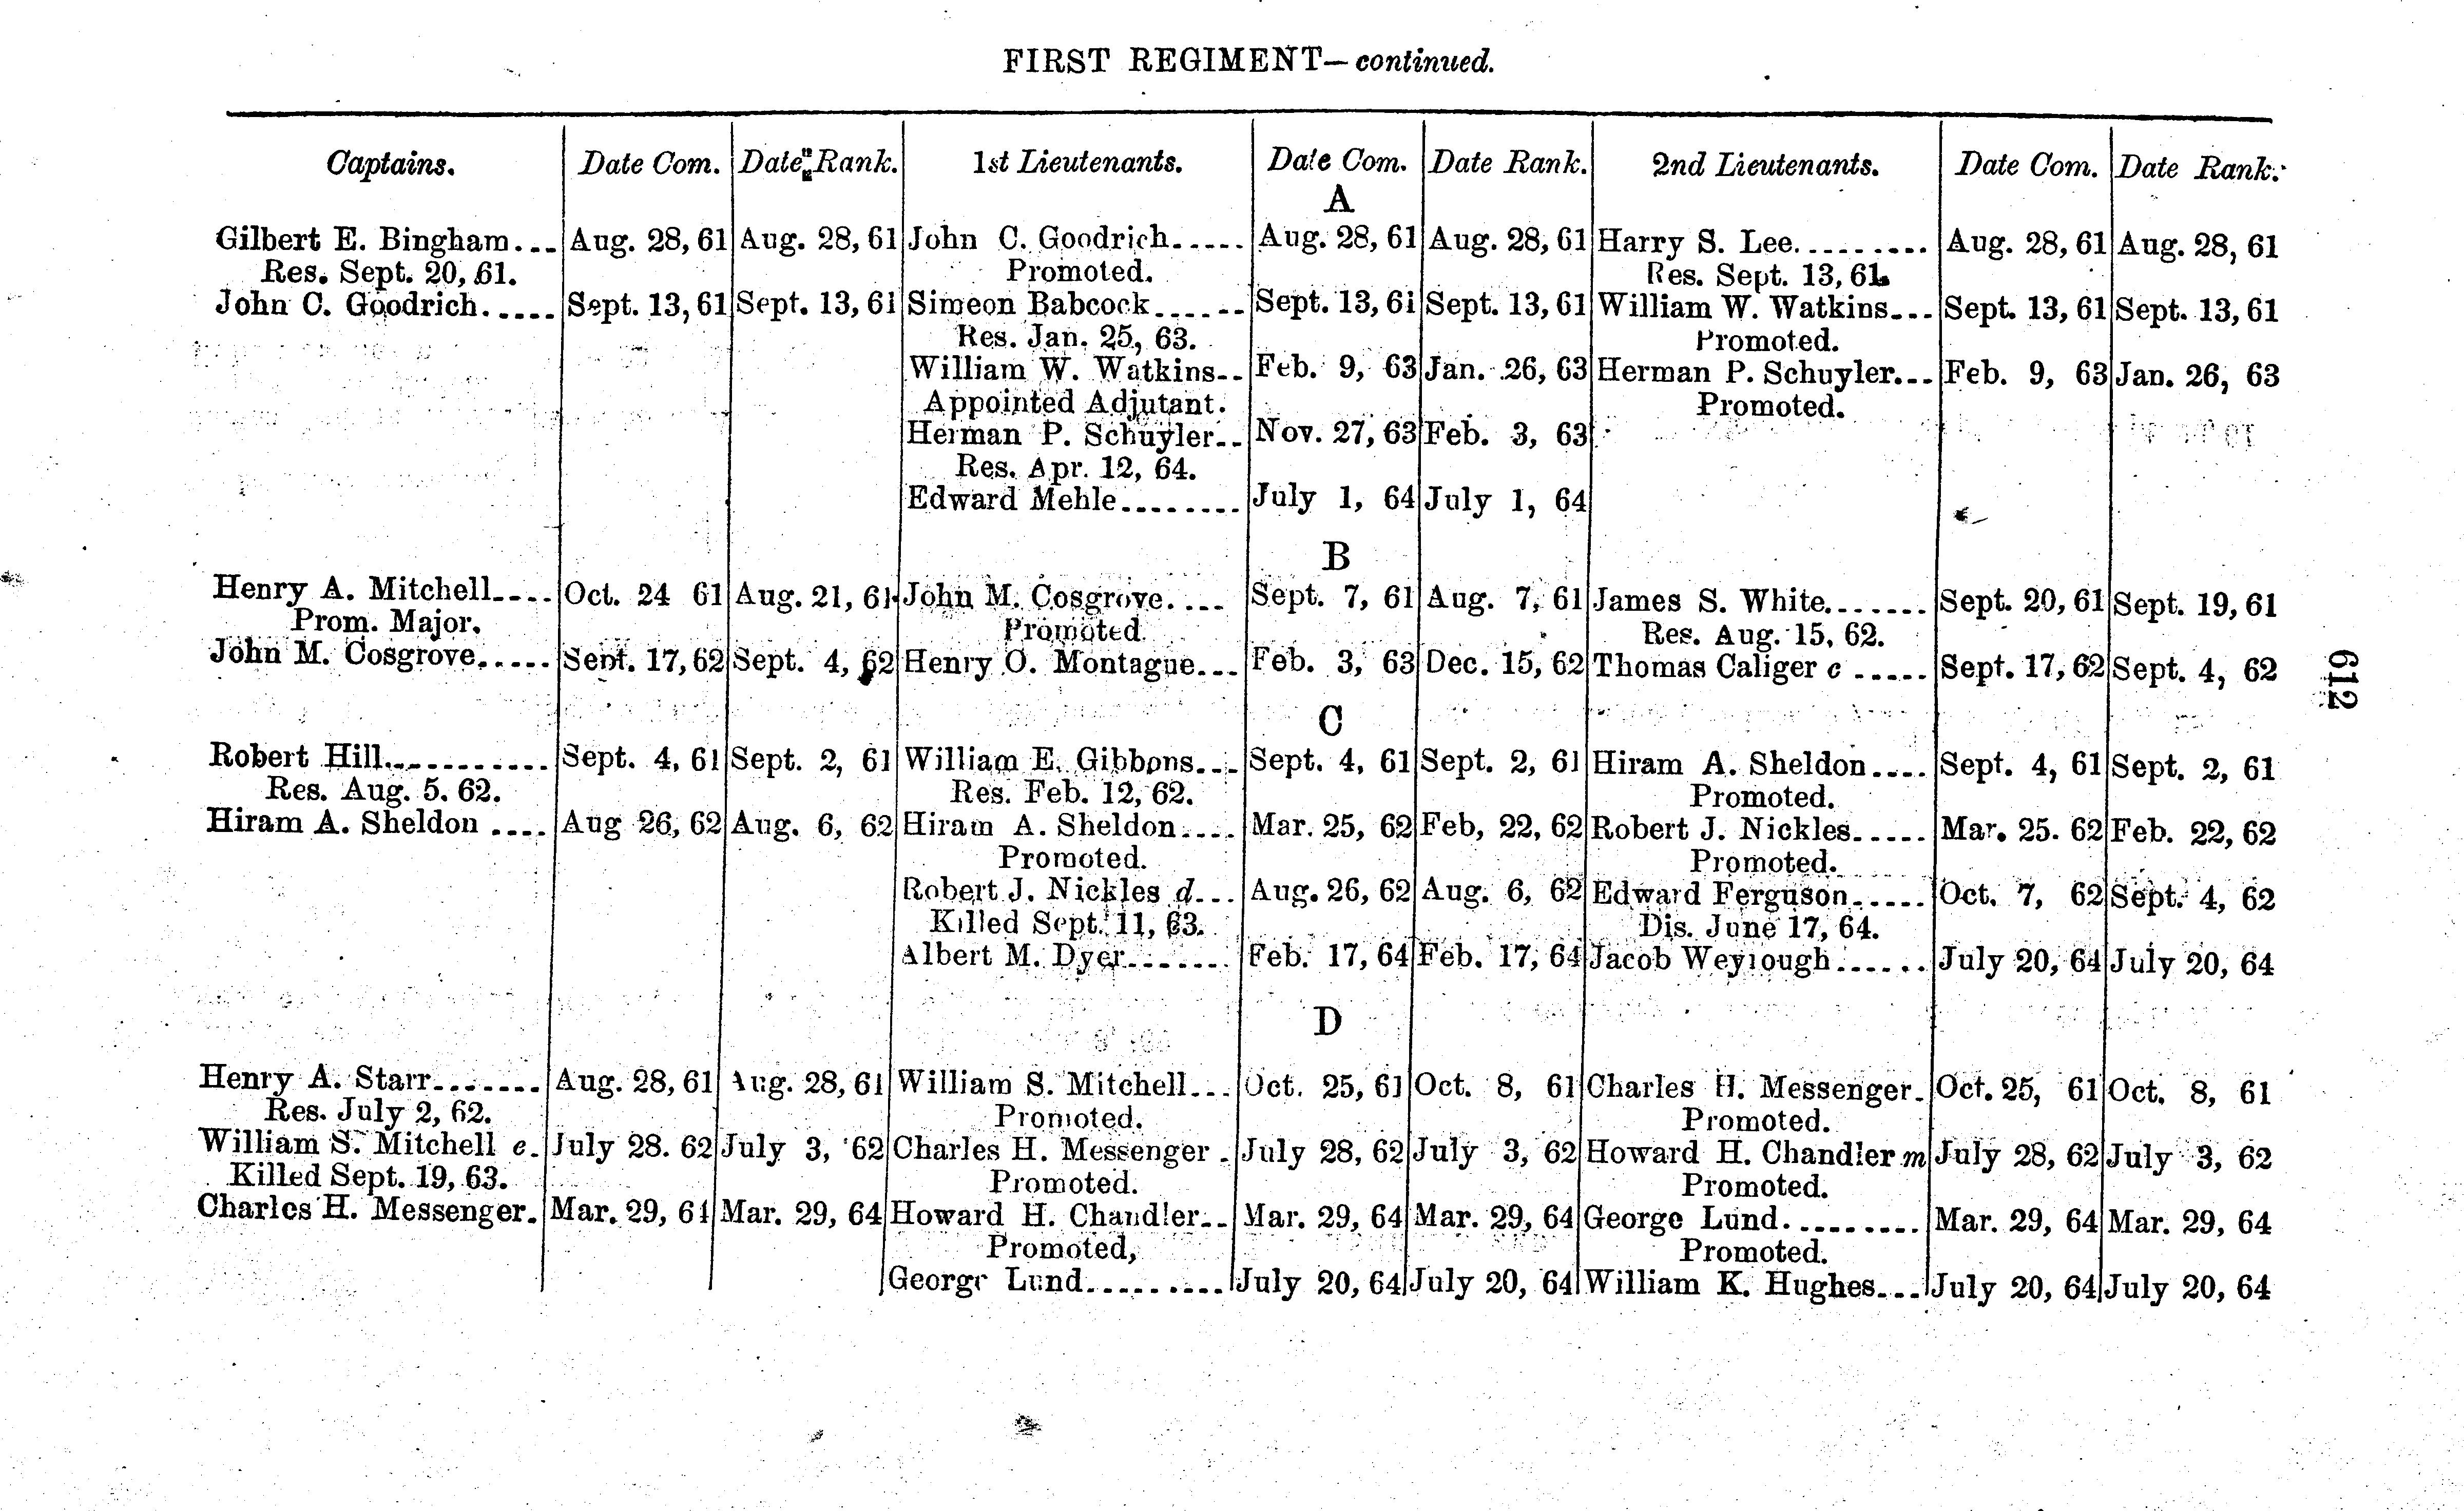 FIRST REGIMENT—continued.
Captains. Date Com. Date Rank. 1st Lieutenants. Date Com. Date Rank. 2nd Lieutenants. Date Com. Date Rank.
A
Gilbert E. Bingham... Aug. 28, 61 Aug. 28, 61 John C. Goodrich..... Aug. 28, 61 Aug. 28, 61 Harry S. Lee......... Aug. 28, 61 Aug. 28, 61
Res. Sept. 20, 61. Promoted. Res. Sept. 13, 61.
John C. Goodrich..... Sept. 13, 61 Sept. 13, 61 Simeon Babcock...... Sept. 13, 61 Sept. 13, 61 William W. Watkins... Sept. 13, 61 Sept. 13, 61
Res. Jan. 25, 63. Promoted.
William W. Watkins.. Feb. 9, 63 Jan. 26, 63 Herman P. Schuyler... Feb. 9, 63 Jan. 26, 63
Appointed Adjutant. Promoted.
Herman P. Schuyler.. Nov. 27, 63 Feb. 3, 63
Res. Apr. 12, 64.
Edward Mehle........ July 1, 64 July 1, 64
B
Henry A. Mitchell.... Oct. 24 61 Aug. 21, 61 John M. Cosgrove.... Sept. 7, 61 Aug. 7, 61 James S. White....... Sept. 20, 61 Sept. 19, 61
Prom. Major. Promoted. Res. Aug. 15, 62.
John M. Cosgrove..... Sept. 17, 62 Sept. 4, 62 Henry O. Montague... Feb. 3, 63 Dec. 15, 62 Thomas Caliger c ..... Sept. 17, 62 Sept. 4, 62
612
C
Robert Hill........... Sept. 4, 61 Sept. 2, 61 William E. Gibbons... Sept. 4, 61 Sept. 2, 61 Hiram A. Sheldon.... Sept. 4, 61 Sept. 2, 61
Res. Aug. 5. 62. Res. Feb. 12, 62. Promoted.
Hiram A. Sheldon .... Aug 26, 62 Aug. 6, 62 Hiram A. Sheldon.... Mar. 25, 62 Feb, 22, 62 Robert J. Nickles..... Mar. 25. 62 Feb. 22, 62
Promoted. Promoted.
Robert J. Nickles d... Aug. 26, 62 Aug. 6, 62 Edward Ferguson..... Oct. 7, 62 Sept. 4, 62
Killed Sept. 11, 63. Dis. June 17, 64.
Albert M. Dyer....... Feb. 17, 64 Feb. 17, 64 Jacob ...... July 20, 64 July 20, 64
D
Henry A. Starr....... Aug. 28, 61 Aug. 28, 61 William S. Mitchell... Oct. 25, 61 Oct. 8, 61 Charles H. Messenger. Oct. 25, 61 Oct. 8, 61
Res. July 2, 62. Promoted. Promoted.
William S. Mitchell e. July 28. 62 July 3, 62 Charles H. Messenger . July 28, 62 July 3, 62 Howard H. Chandler m July 28, 62 July 3, 62
Killed Sept. 19, 63. Promoted. Promoted.
Charles H. Messenger. Mar. 29, 64 Mar. 29, 64 Howard H. Chandler.. Mar. 29, 64 Mar. 29, 64 George Lund......... Mar. 29, 64 Mar. 29, 64
Promoted, Promoted.
George Lund.......... July 20, 64 July 20, 64 William K. Hughes... July 20, 64 July 20, 64